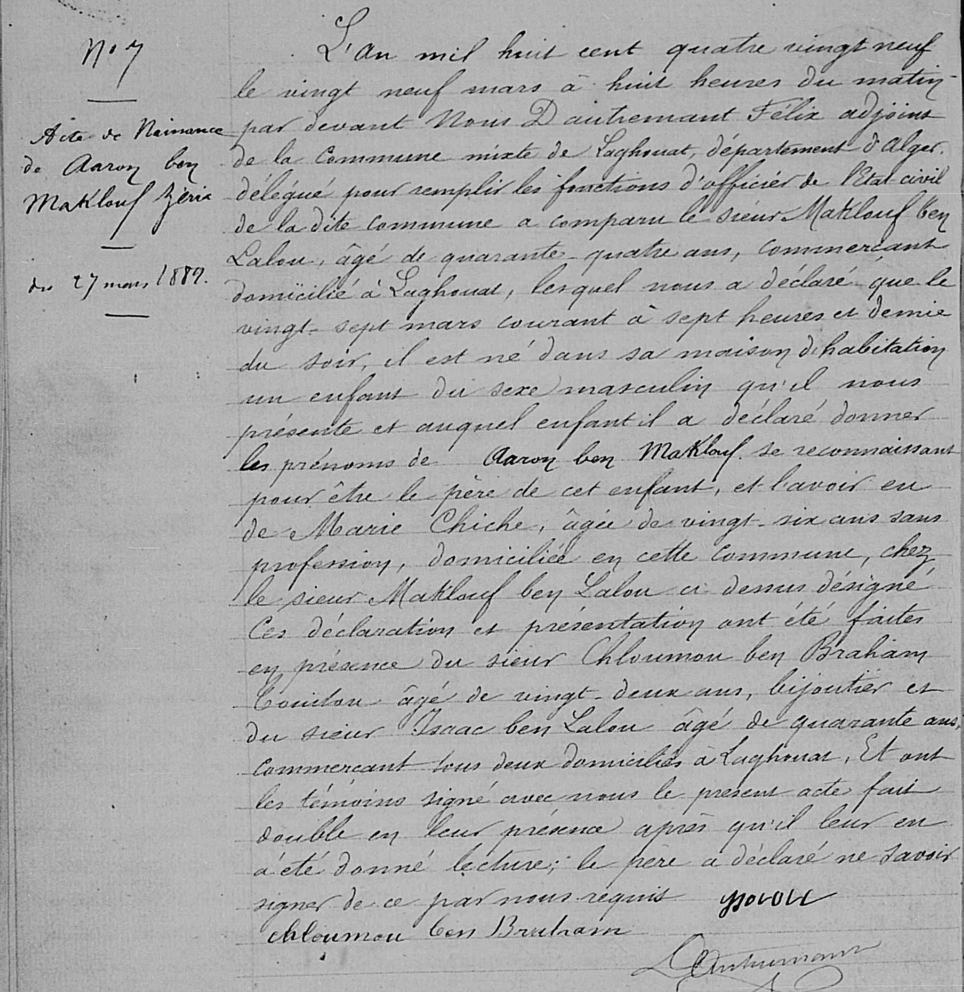 N° 7
Acte de Naissance
de Aaron ben
Maklouf Zéria
du 27 mars 1889.
L'an mil huit cent quatre vingt neuf
le vingt neuf mars à huit heures du matin
par devant Nous Dautremant Félix adjoint
de la Commune mixte de Laghouat, département d'Alger.
délégué pour remplir les fonctions d'officier de l'Etat civil
de la dite commune a comparu le sieur Maklouf ben
Lalou, âgé de quarante-quatre ans, commerçant
domicilié à Laghouat, lesquel nous a déclaré que le
vingt-sept mars courant à sept heures et demie
du soir, il est né dans sa maison d'habitation
un enfant du sexe masculin qu'il nous
présente et auquel enfant il a déclaré donner
les prénoms de Aaron ben Maklouf. se reconnaissant
pour être le père de cet enfant, et l'avoir eu
de Marie Chiche, âgée de vingt-six ans sans
profession, domiciliée en cette commune, chez
le sieur Maklouf ben Lalou ci dessus désigné
Ces déclaration et présentation ont été faites
en présence du sieur Chloumou ben Braham
âgé de vingt-deux ans, bijoutier et
du sieur Isaac ben Lalou âgé de quarante ans,
commerçant tous deux domiciliés à Laghouat, Et ont
les témoins signé avec nous le présent acte fait
double en leur présence après qu'il leur en
a été donné lecture; le père a déclaré ne savoir
signer de ce par nous requis
chloumou ben Bruham
Dautremant